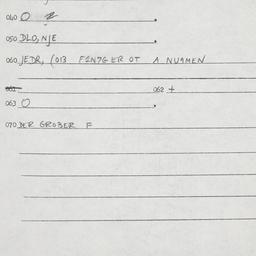 040 O z .
050 DLO, NJE .
060 JEDR, (013 FINTGER OT A NUAMEN
061 062 +
063 O .
070 DER GROBER F